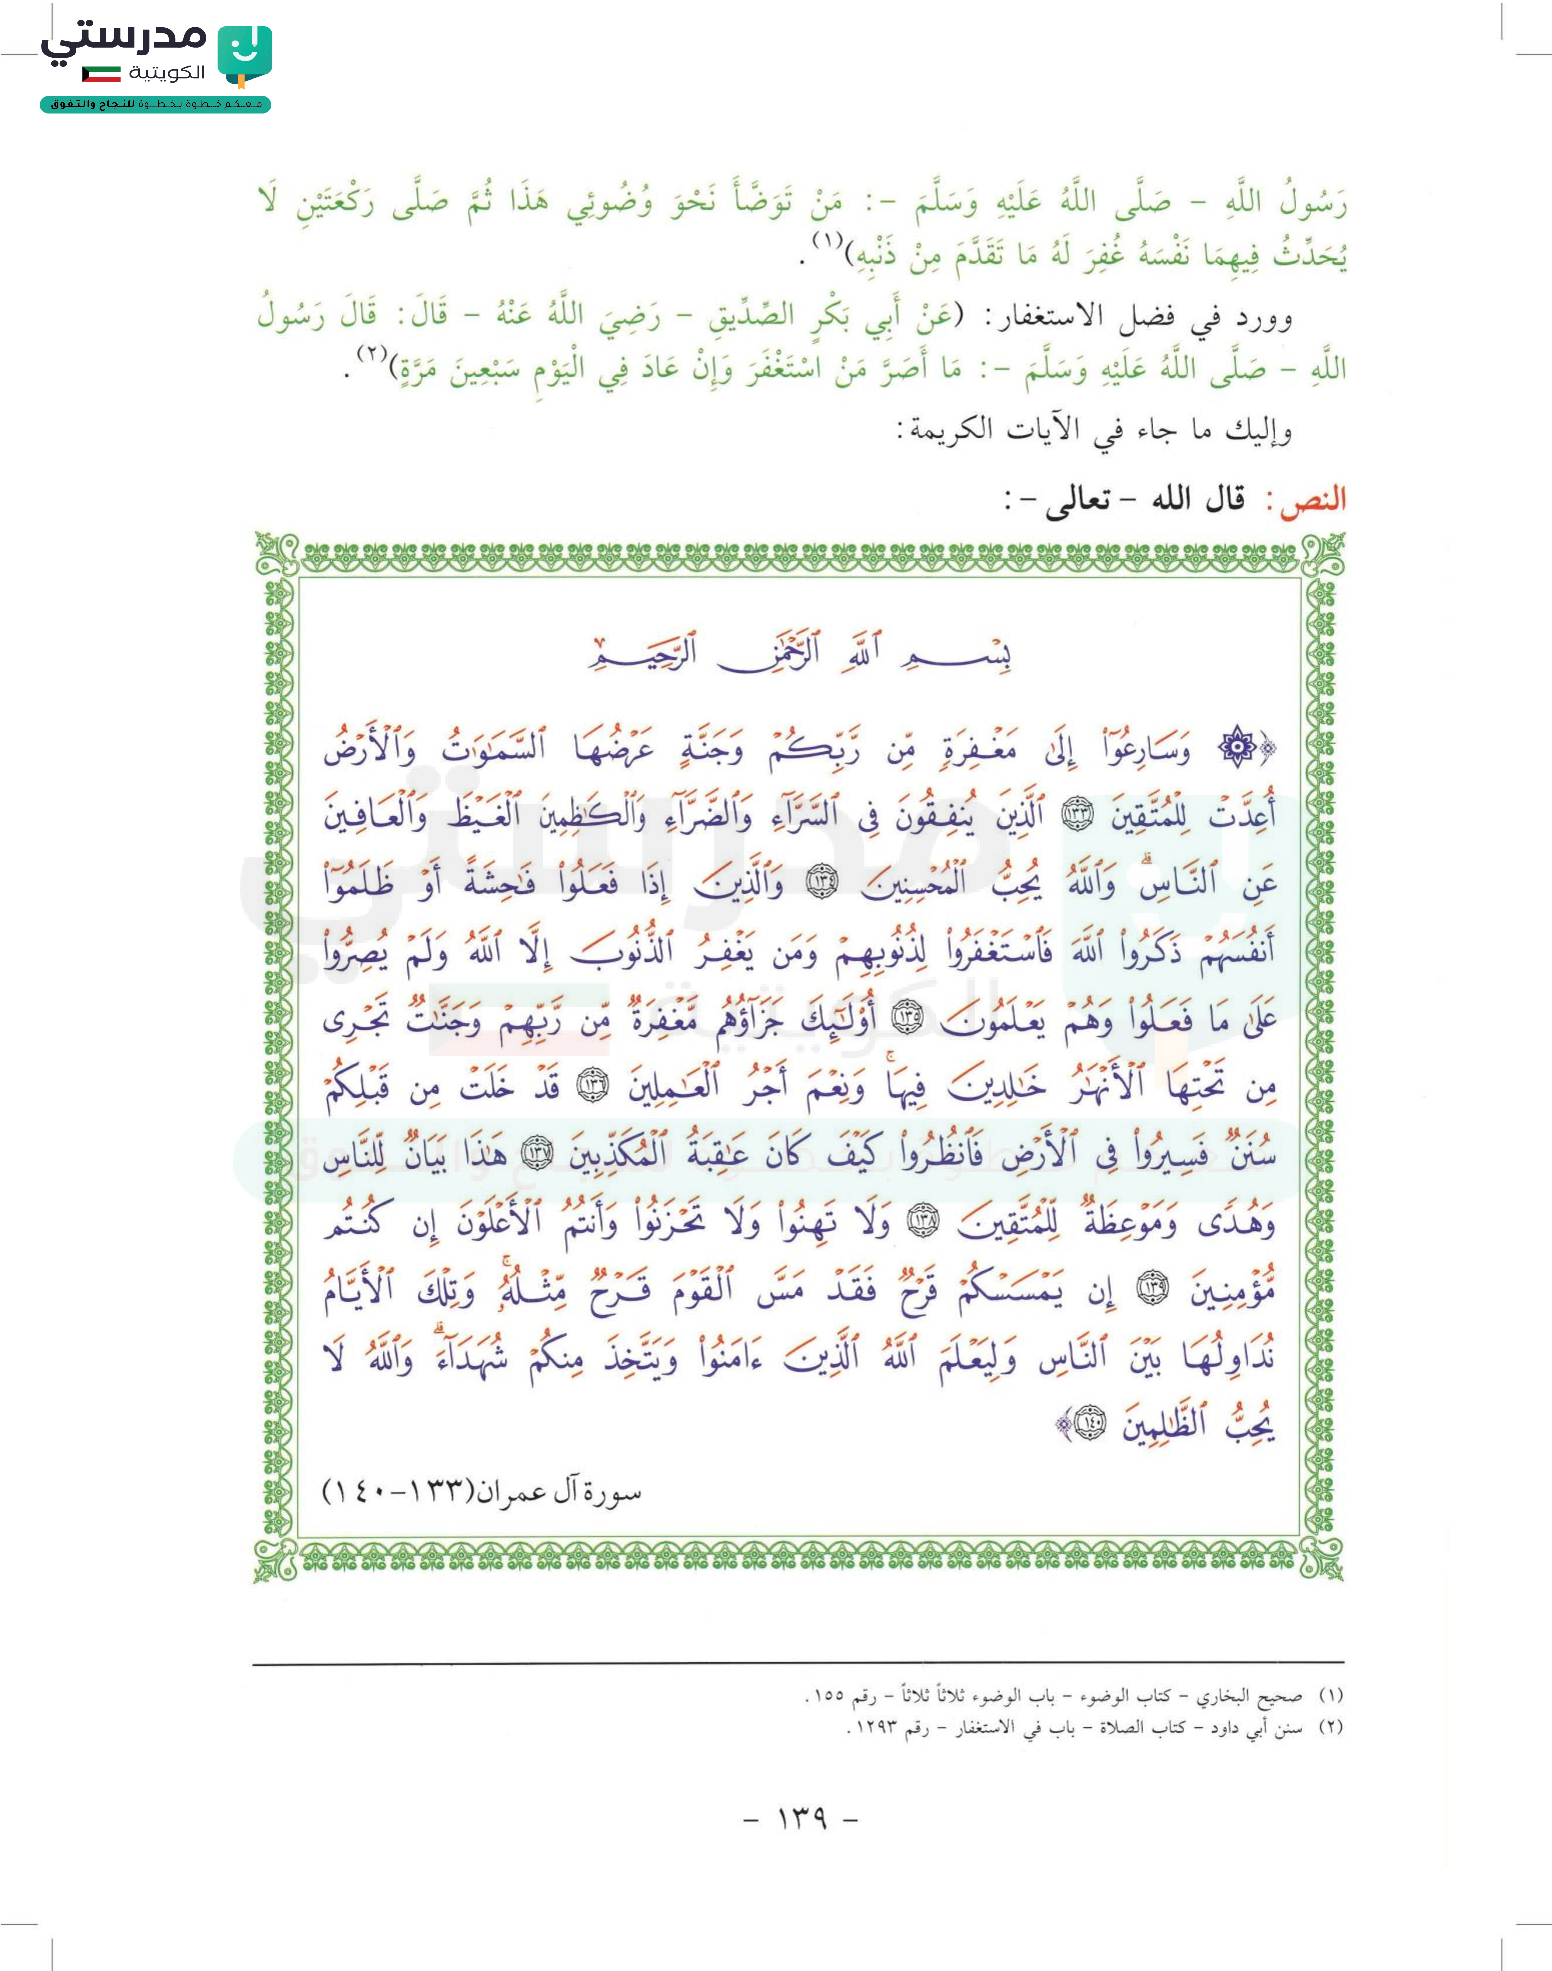 مدرستي
الكويتية
معكم خطوة بخطوة للنجاح والتفوق
رَسُولُ اللَّهِ - صَلَّى اللَّهُ عَلَيْهِ وَسَلَّمَ -: مَنْ تَوَضَّأَ نَحْوَ وُضُوئِي هَذَا ثُمَّ صَلَّى رَكْعَتَيْنِ لَا
يُحَدِّثُ فِيهِمَا نَفْسَهُ غُفِرَ لَهُ مَا تَقَدَّمَ مِنْ ذَنْبِهِ)(١).
وورد في فضل الاستغفار: (عَنْ أَبِي بَكْرٍ الصِّدِّيقِ - رَضِيَ اللَّهُ عَنْهُ - قَالَ: قَالَ رَسُولُ
اللَّهِ - صَلَّى اللَّهُ عَلَيْهِ وَسَلَّمَ -: مَا أَصَرَّ مَنْ اسْتَغْفَرَ وَإِنْ عَادَ فِي الْيَوْمِ سَبْعِينَ مَرَّةٍ)(٢).
وإليك ما جاء في الآيات الكريمة:
النص: قال الله - تعالى -:
بِسْمِ ٱللَّهِ ٱلرَّحْمَٰنِ ٱلرَّحِيمِ
﴿۞ وَسَارِعُوٓا۟ إِلَىٰ مَغْفِرَةٍ مِّن رَّبِّكُمْ وَجَنَّةٍ عَرْضُهَا ٱلسَّمَٰوَٰتُ وَٱلْأَرْضُ
أُعِدَّتْ لِلْمُتَّقِينَ ١٣٣ ٱلَّذِينَ يُنفِقُونَ فِى ٱلسَّرَّآءِ وَٱلضَّرَّآءِ وَٱلْكَٰظِمِينَ ٱلْغَيْظَ وَٱلْعَافِينَ
عَنِ ٱلنَّاسِ ۗ وَٱللَّهُ يُحِبُّ ٱلْمُحْسِنِينَ ١٣٤ وَٱلَّذِينَ إِذَا فَعَلُوا۟ فَٰحِشَةً أَوْ ظَلَمُوٓا۟
أَنفُسَهُمْ ذَكَرُوا۟ ٱللَّهَ فَٱسْتَغْفَرُوا۟ لِذُنُوبِهِمْ وَمَن يَغْفِرُ ٱلذُّنُوبَ إِلَّا ٱللَّهُ وَلَمْ يُصِرُّوا۟
عَلَىٰ مَا فَعَلُوا۟ وَهُمْ يَعْلَمُونَ ١٣٥ أُو۟لَٰٓئِكَ جَزَآؤُهُم مَّغْفِرَةٌ مِّن رَّبِّهِمْ وَجَنَّٰتٌ تَجْرِى
مِن تَحْتِهَا ٱلْأَنْهَٰرُ خَٰلِدِينَ فِيهَا ۚ وَنِعْمَ أَجْرُ ٱلْعَٰمِلِينَ ١٣٦ قَدْ خَلَتْ مِن قَبْلِكُمْ
سُنَنٌ فَسِيرُوا۟ فِى ٱلْأَرْضِ فَٱنظُرُوا۟ كَيْفَ كَانَ عَٰقِبَةُ ٱلْمُكَذِّبِينَ ١٣٧ هَٰذَا بَيَانٌ لِّلنَّاسِ
وَهُدًى وَمَوْعِظَةٌ لِّلْمُتَّقِينَ ١٣٨ وَلَا تَهِنُوا۟ وَلَا تَحْزَنُوا۟ وَأَنتُمُ ٱلْأَعْلَوْنَ إِن كُنتُم
مُّؤْمِنِينَ ١٣٩ إِن يَمْسَسْكُمْ قَرْحٌ فَقَدْ مَسَّ ٱلْقَوْمَ قَرْحٌ مِّثْلُهُۥ ۚ وَتِلْكَ ٱلْأَيَّامُ
نُدَاوِلُهَا بَيْنَ ٱلنَّاسِ وَلِيَعْلَمَ ٱللَّهُ ٱلَّذِينَ ءَامَنُوا۟ وَيَتَّخِذَ مِنكُمْ شُهَدَآءَ ۗ وَٱللَّهُ لَا
يُحِبُّ ٱلظَّٰلِمِينَ ١٤٠﴾
سورة آل عمران(١٣٣-١٤٠)
(١) صحيح البخاري - كتاب الوضوء - باب الوضوء ثلاثاً ثلاثاً - رقم ١٥٥.
(٢) سنن أبي داود - كتاب الصلاة - باب في الاستغفار - رقم ١٢٩٣.
- ١٣٩ -